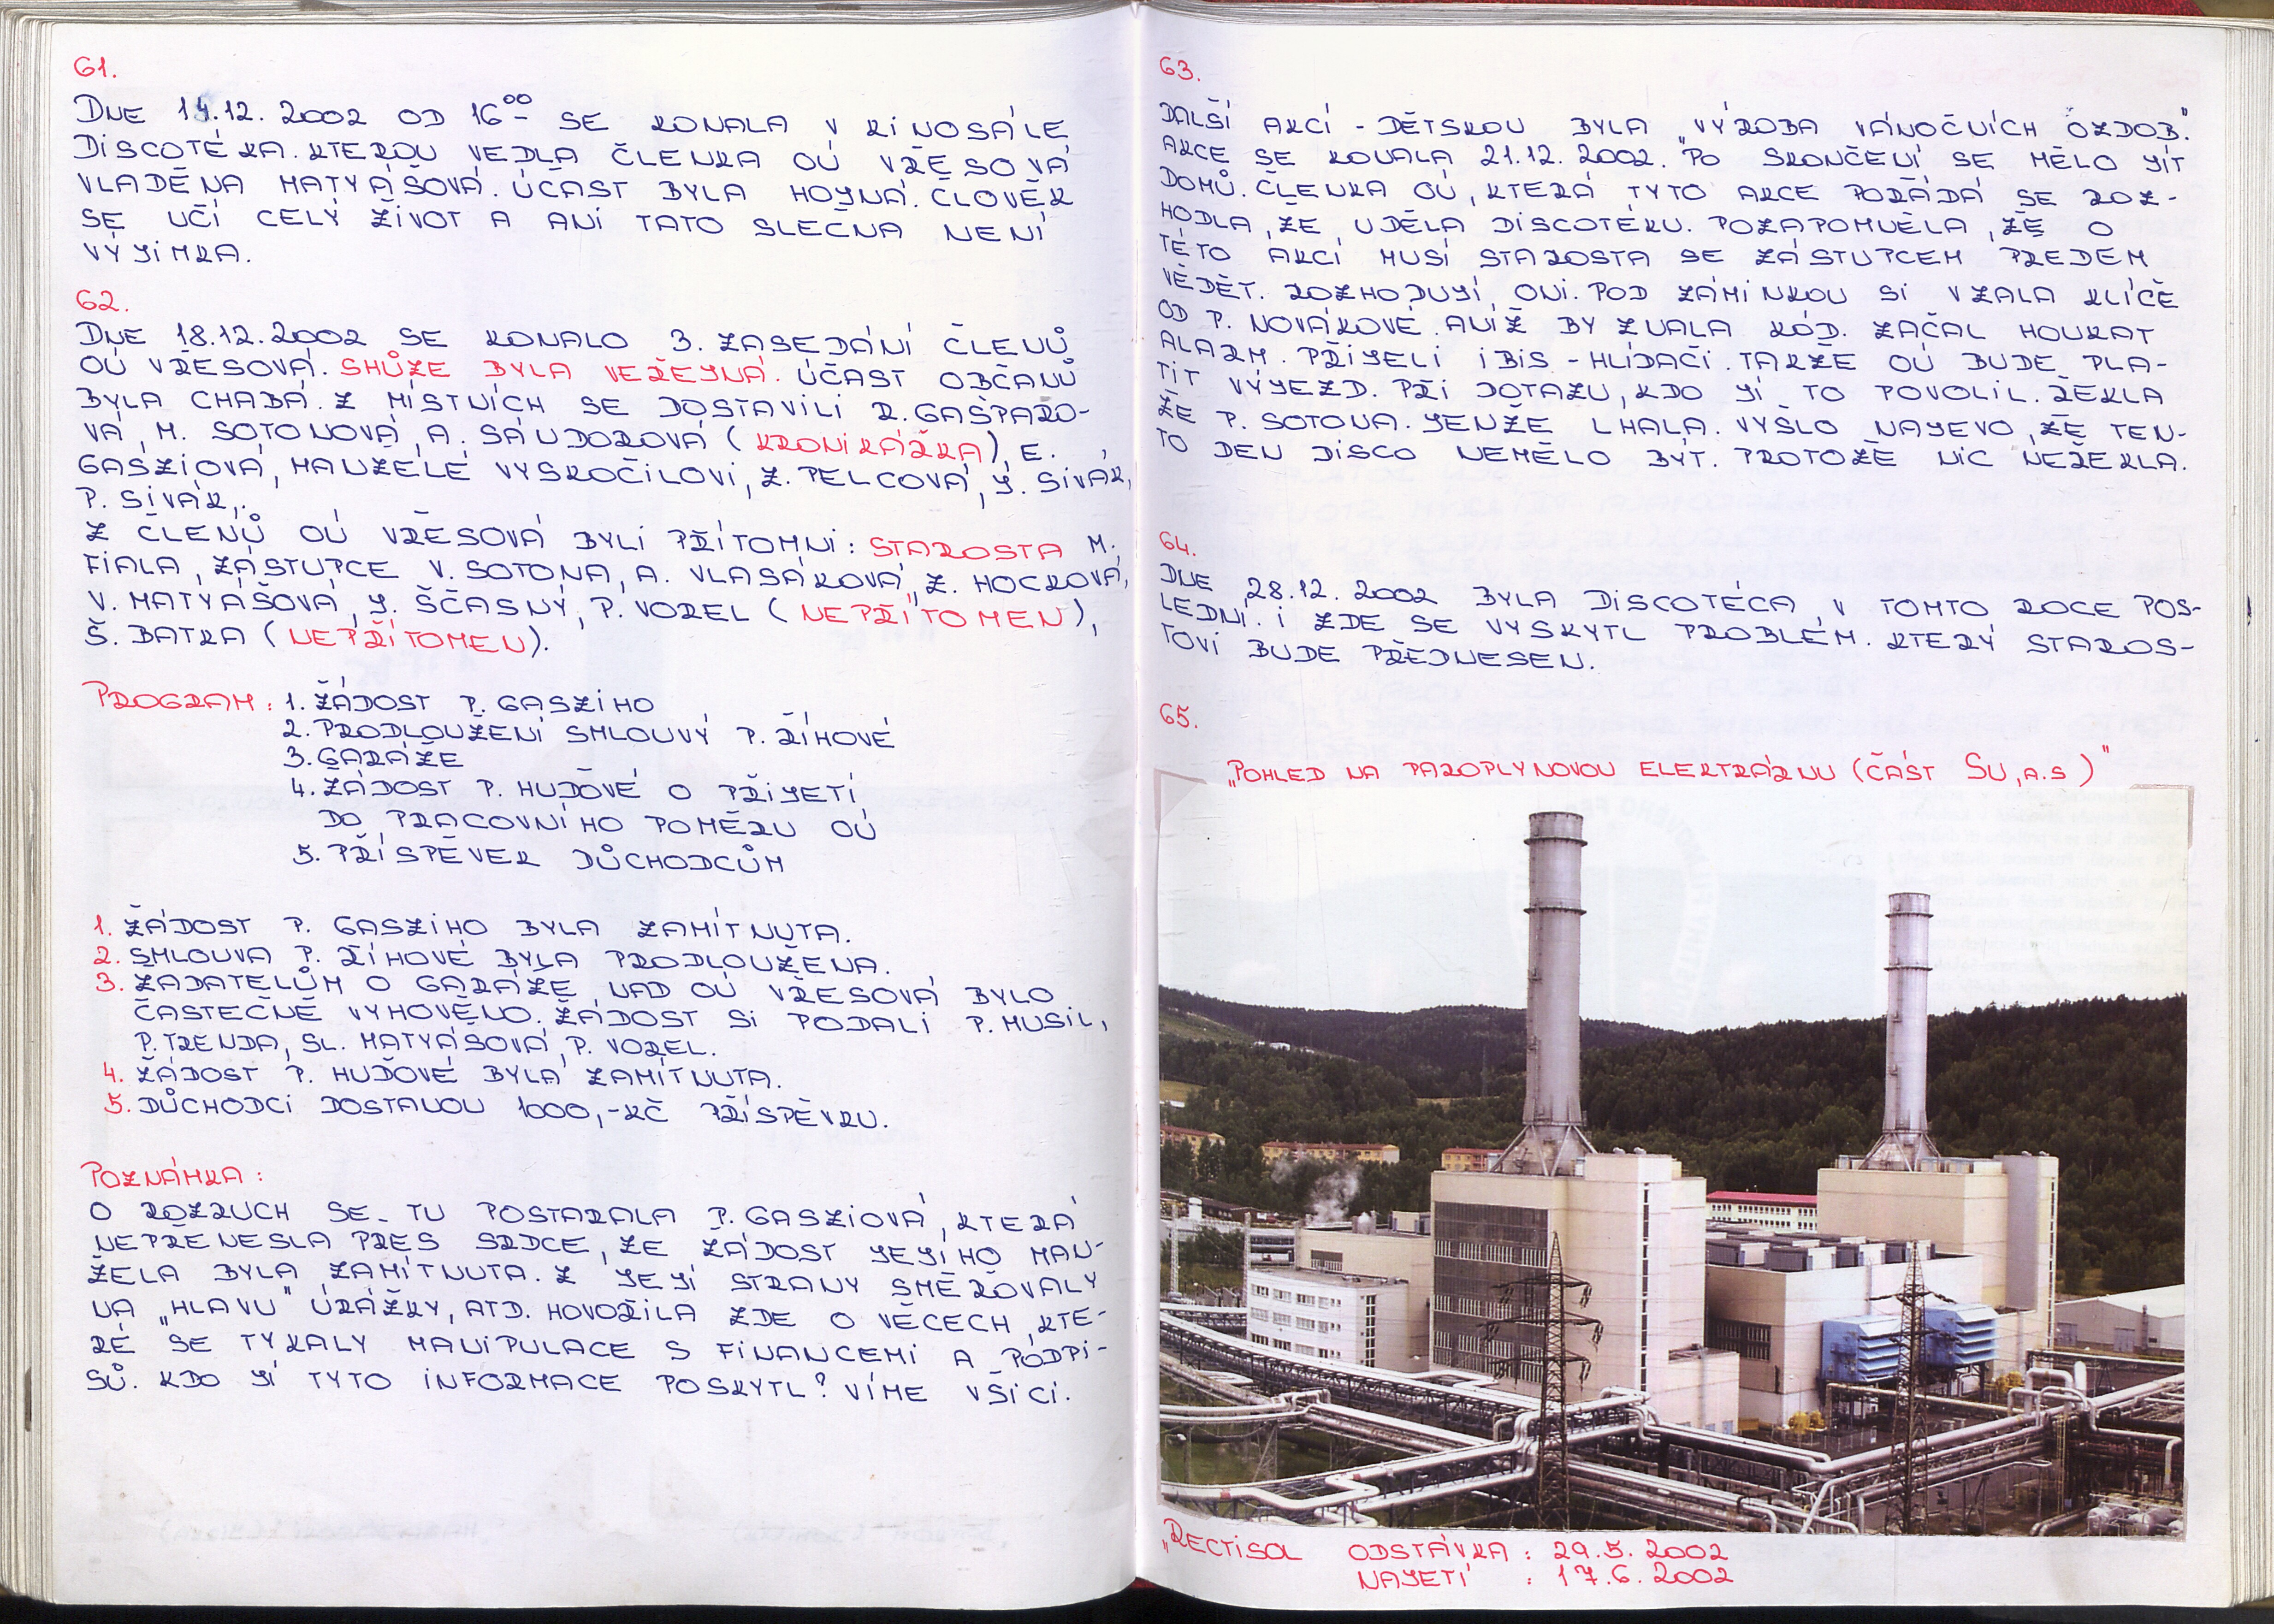 61.
DNE 14.12. 2002 OD 16⁰⁰ SE KONALA V KINOSÁLE
DISCOTÉKA. KTEROU VEDLA ČLENKA OÚ VŘESOVÁ
VLADĚNA MATYÁŠOVÁ. ÚČAST BYLA HOJNÁ. ČLOVĚK
SE UČÍ CELÝ ŽIVOT A ANI TATO SLEČNA NENÍ
VÝJIMKA.
62.
DNE 18.12.2002 SE KONALO 3. ZASEDÁNÍ ČLENŮ
OÚ VŘESOVÁ. SHŮZE BYLA VEŘEJNÁ. ÚČAST OBČANŮ
BYLA CHABÁ. Z MÍSTNÍCH SE DOSTAVILI R. GAŠPARO-
VÁ, M. SOTONOVÁ, A. SÁNDOROVÁ (KRONIKÁŘKA), E.
GASZIOVÁ, MANŽELÉ VYSKOČILOVI, Z. PELCOVÁ, J. SIVÁK,
P. SIVÁK,.
Z ČLENŮ OÚ VŘESOVÁ BYLI PŘÍTOMNI: STAROSTA M.
FIALA, ZÁSTUPCE V. SOTONA, A. VLASÁKOVÁ, Z. HOCKOVÁ,
V. MATYÁŠOVÁ, J. ŠČASNÝ, P. VOREL (NEPŘÍTOMEN),
Š. BATKA (NEPŘÍTOMEN).
PROGRAM: 1. ŽÁDOST P. GASZIHO
2. PRODLOUŽENÍ SMLOUVY P. ŘÍHOVÉ
3. GARÁŽE
4. ŽÁDOST P. HUĎOVÉ O PŘIJETÍ
DO PRACOVNÍHO POMĚRU OÚ
5. PŘÍSPĚVEK DŮCHODCŮM
1. ŽÁDOST P. GASZIHO BYLA ZAMÍTNUTA.
2. SMLOUVA P. ŘÍHOVÉ BYLA PRODLOUŽENA.
3. ŽADATELŮM O GARÁŽE NAD OÚ VŘESOVÁ BYLO
ČASTEČNĚ VYHOVĚNO. ŽÁDOST SI PODALI P. MUSIL,
P. TRENDA, SL. MATYÁSOVÁ, P. VOREL.
4. ŽÁDOST P. HUĎOVÉ BYLA ZAMÍTNUTA.
5. DŮCHODCI DOSTANOU 1000,-KČ PŘÍSPĚVKU.
POZNÁMKA:
O ROZRUCH SE TU POSTARALA P. GASZIOVÁ, KTERÁ
NEPŘENESLA PŘES SRDCE, ŽE ŽÁDOST JEJÍHO MAN-
ŽELA BYLA ZAMÍTNUTA. Z JEJÍ STRANY SMĚŘOVALY
NA „HLAVU" ÚRÁŽKY, ATD. HOVOŘILA ZDE O VĚCECH, KTE-
RÉ SE TYKALY MANIPULACE S FINANCEMI A PODPI-
SŮ. KDO JÍ TYTO INFORMACE POSKYTL? VÍME VŠICI.
63.
DALŠÍ AKCÍ - DĚTSKOU BYLA „VÝROBA VÁNOČNÍCH OZDOB."
AKCE SE KONALA 21.12. 2002. PO SKONČENÍ SE MĚLO JÍT
DOMŮ. ČLENKA OÚ, KTERÁ TYTO AKCE POŘÁDÁ SE ROZ-
HODLA, ŽE UDĚLA DISCOTÉKU. POZAPOMNĚLA, ŽE O
TÉTO AKCI MUSÍ STAROSTA SE ZÁSTUPCEM PŘEDEM
VĚDĚT. ROZHODUJÍ ONI. POD ZÁMINKOU SI VZALA KLÍČE
OD P. NOVÁKOVÉ. ANIŽ BY ZNALA KÓD. ZAČAL HOUKAT
ALARM. PŘIJELI IBIS - HLÍDAČI. TAKŽE OÚ BUDE PLA-
TIT VÝJEZD. PŘI DOTAZU, KDO JÍ TO POVOLIL. ŘEKLA
ŽE P. SOTONA. JENŽE LHALA. VYŠLO NAJEVO, ŽE TEN-
TO DEN DISCO NEMĚLO BÝT. PROTOŽE NIC NEŘEKLA.
64.
DNE 28.12. 2002 BYLA DISCOTÉCA V TOMTO ROCE POS-
LEDNÍ. I ZDE SE VYSKYTL PROBLÉM. KTERÝ STAROS-
TOVI BUDE PŘEDNESEN.
65.
„POHLED NA PAROPLYNOVOU ELEKTRÁRNU (ČÁST SU, A.S)"
„RECTISOL ODSTÁVKA: 29.5. 2002
NAJETÍ : 17.6. 2002